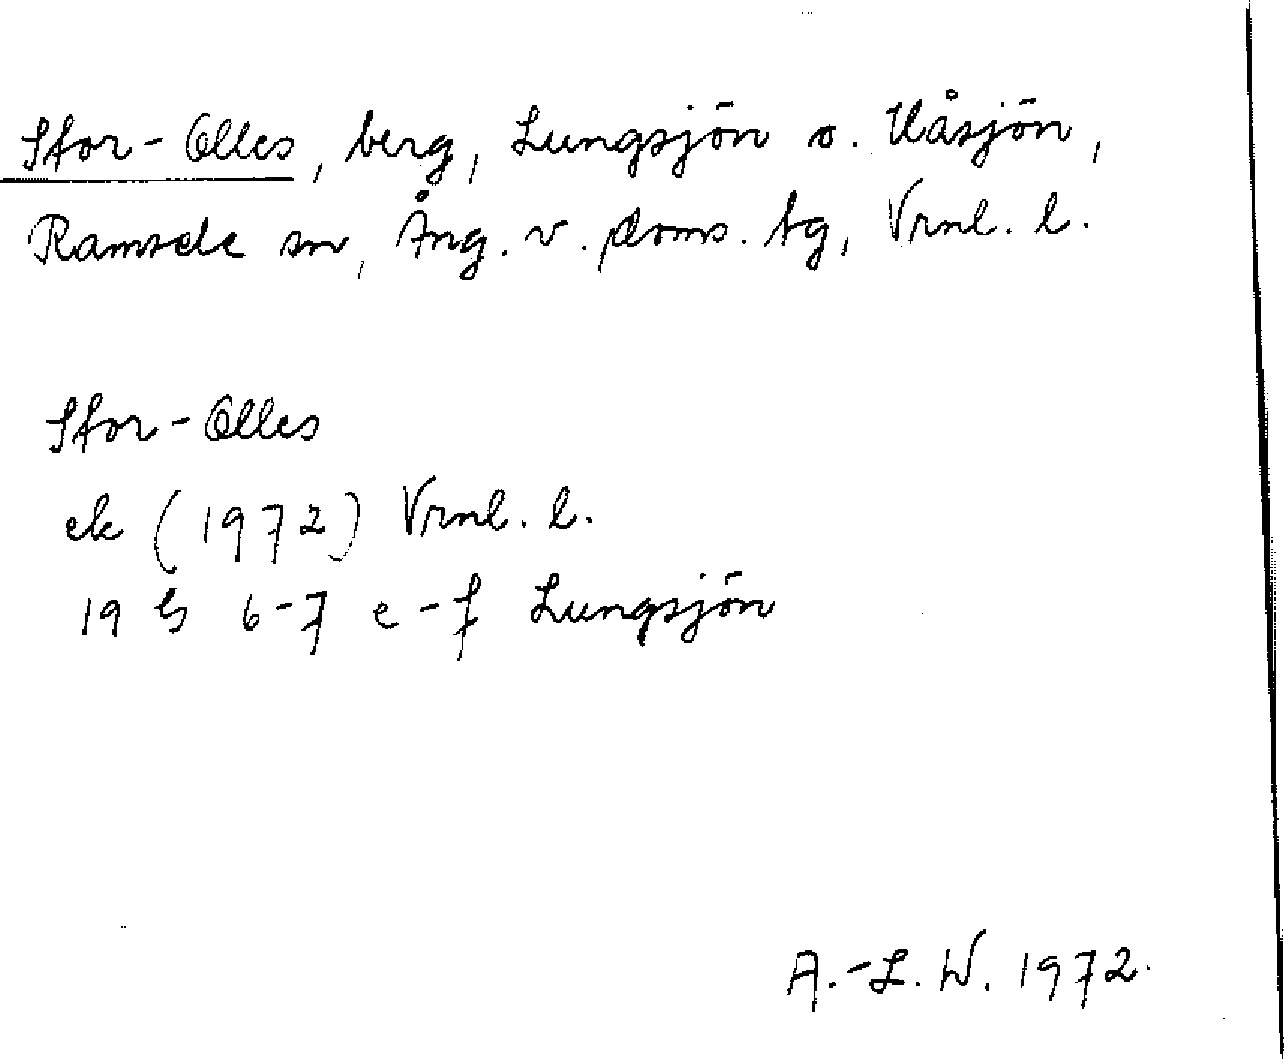 Stor-Olles, berg, Lungsjön o. Uåsjön,
Ramsele sn, Ång. v. doms. tg, Vrnl. l.
Stor-Olles
ek (1972) Vrnl. l.
19 G 6-7 e-f Lungsjön
A.-L. W. 1972.